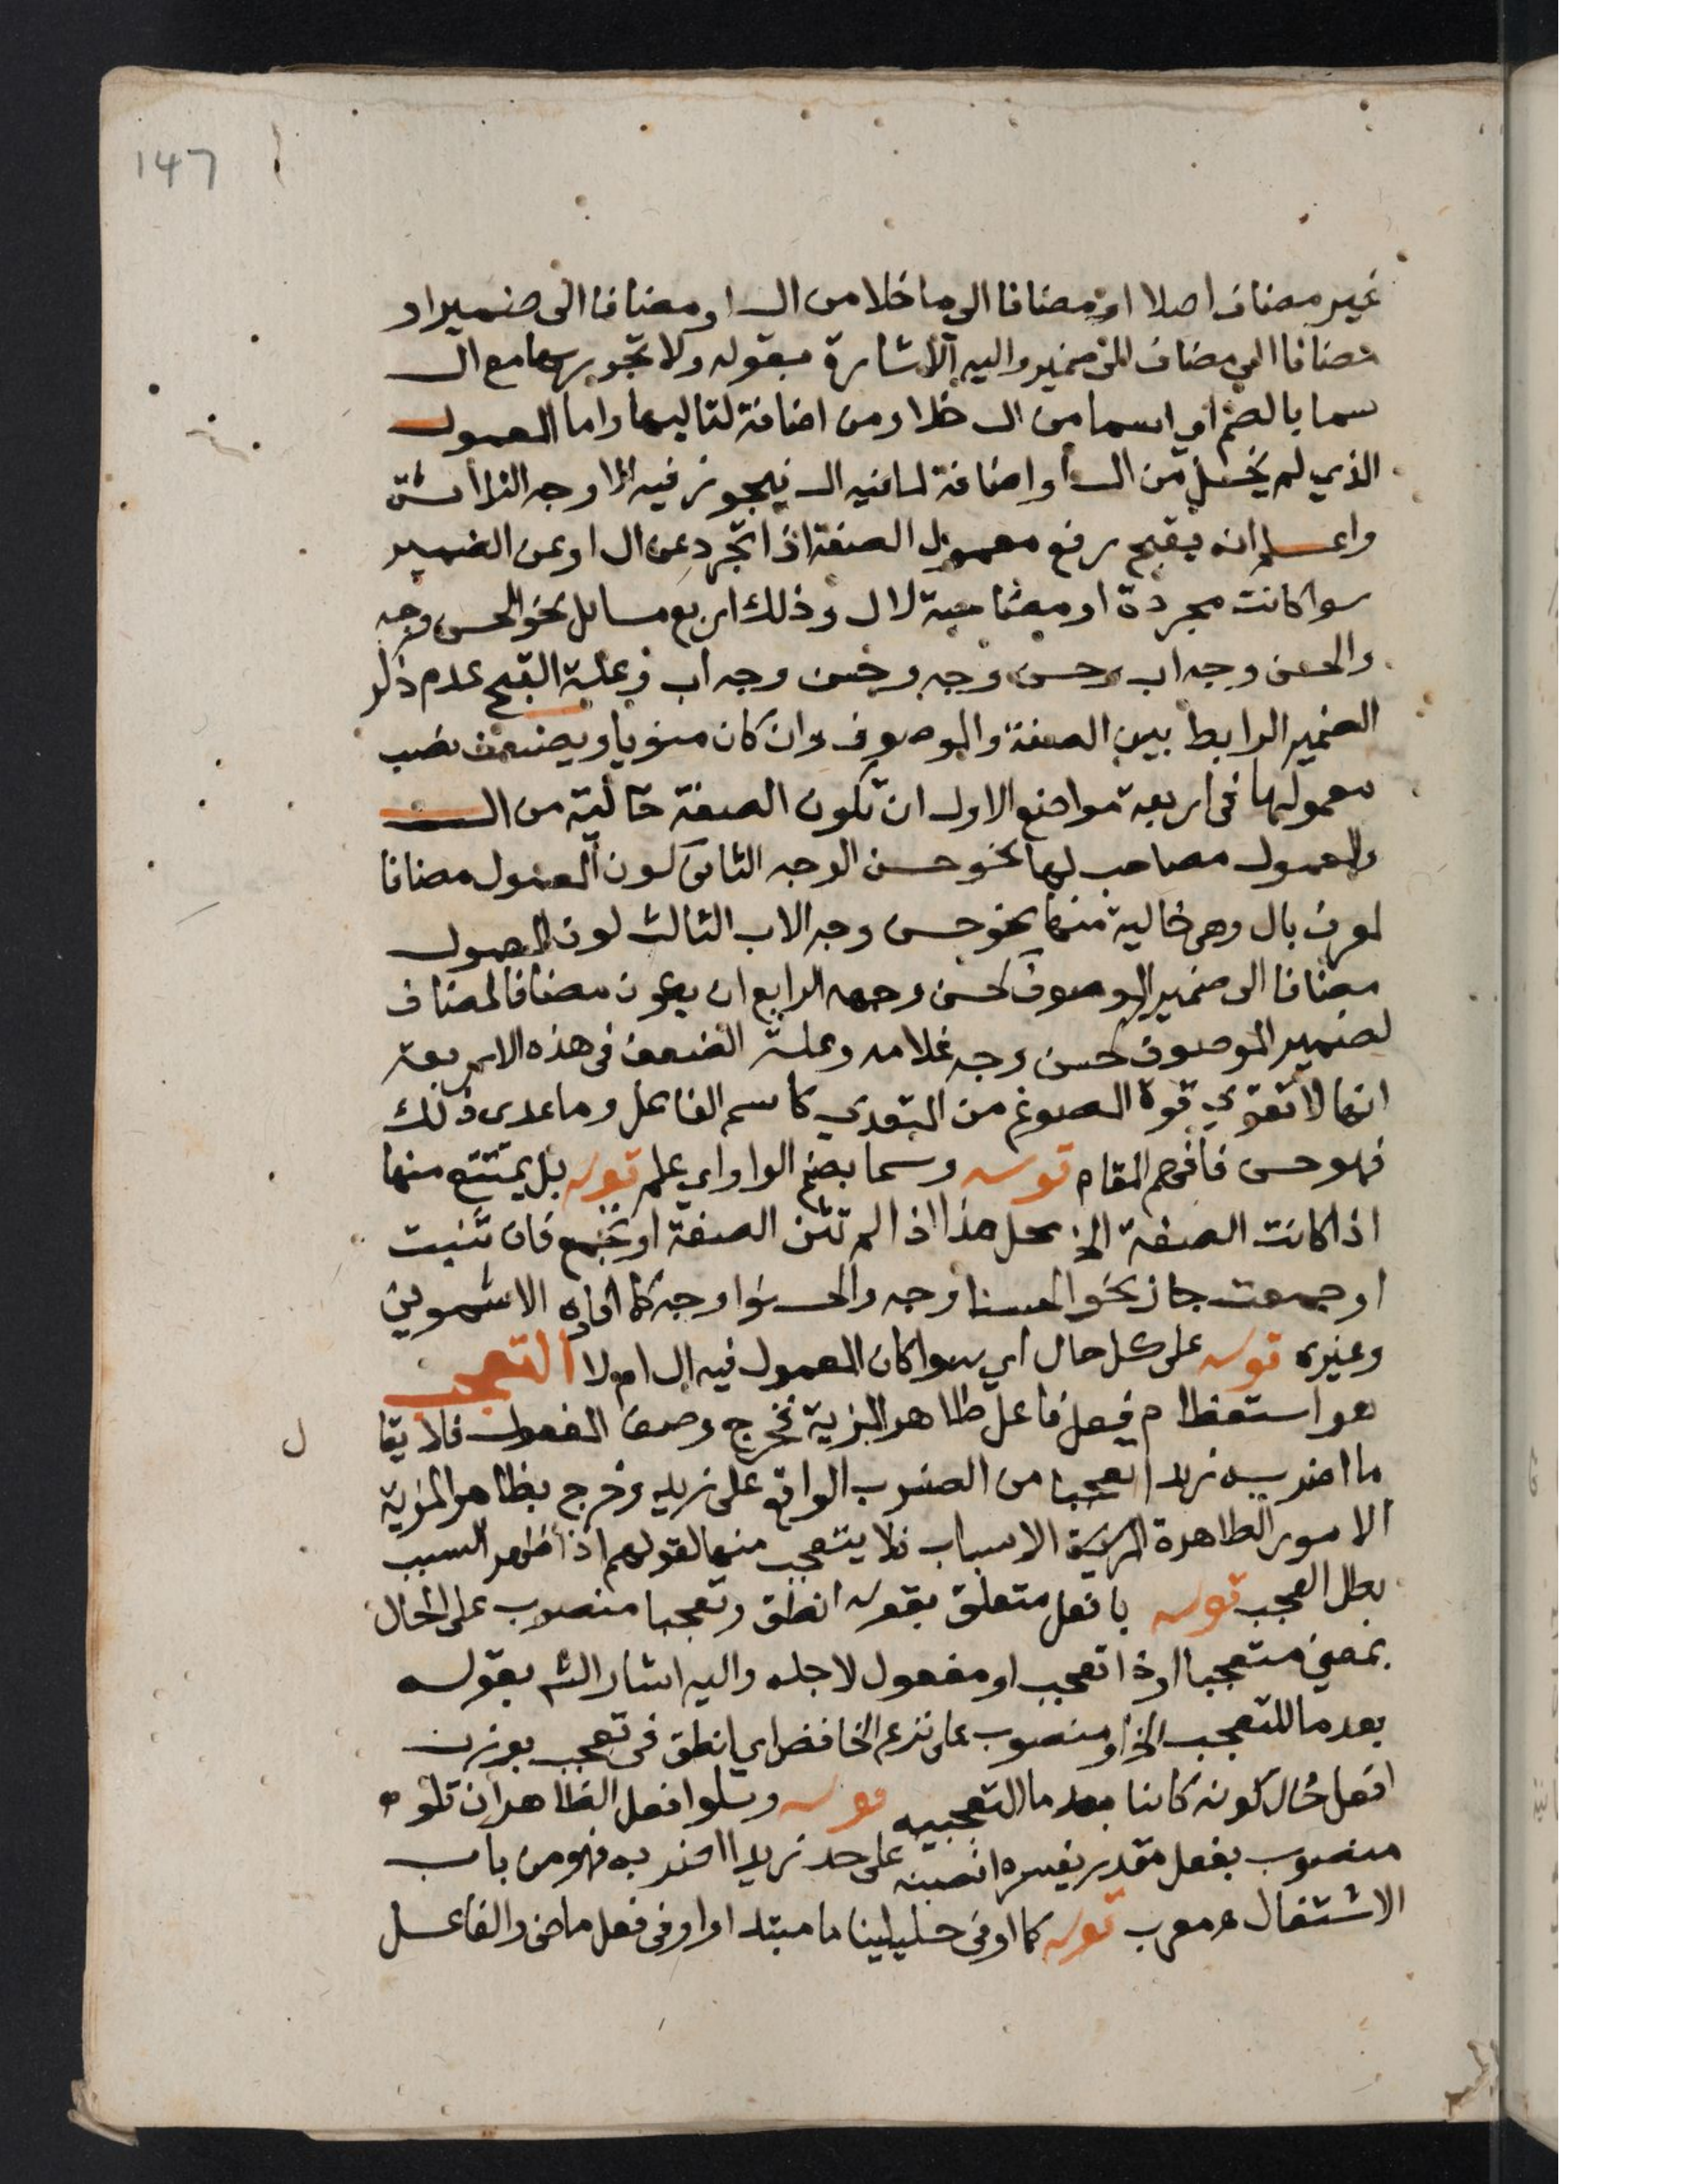 147
غير مضاف اصلا او مضافا الى ما خلا من ال او مضافا الى ضمير او
مضافا الى مضاف للضمير واليه الاشارة بقوله ولا تجرر بها مع ال
سما بالضم اي اسما من ال خلا ومن اضافة لتاليها واما المعمول
الذي لم يخل من ال او اضافة لما فيه ال فيجوز فيه الاوجه الثلاثة
واعلم انه يقبح رفع معمول الصفة اذا تجرد عن ال او عن الضمير
سوا كانت مجردة او مصاحبة لال وذلك اربع مسايل نحو الحسن وجه
والحسن وجه اب وحسن وجه وحسن وجه اب وعلة القبح عدم ذكر
الضمير الرابط بين الصفة والموصوف وان كان منويا ويضعف نصب
معمولها في اربعة مواضع الاول ان تكون الصفة خالية من ال
والمعمول مصاحب لها نحو حسن الوجه الثاني كون المعمول مضافا
لمعرف بال وهي خالية منها نحو حسن وجه الاب الثالث كون المعمول
مضافا الى ضمير الموصوف كحسن وجهه الرابع ان يكون مضافا لمضاف
لضمير الموصوف كحسن وجه غلامه وعلة الضعف في هذه الاربعة
انها لا تقوى قوة المصوغ من المتعدي كاسم الفاعل وما عدى ذلك
فهو حسن فافهم المقام قوله وسما بضم الواو اي علم قوله بل يمتنع منها
اذا كانت الصفة الخ محل هذا اذا لم تثن الصفة او تجمع فان تنيت
او جمعت جاز نحو الحسنا وجه والحسنوا وجه كما افاده الاشموني
وغيره قوله على كل حال اي سوا كان المعمول فيه ال ام لا التعجب
هو استعظام فعل فاعل ظاهر المزية فخرج وصف المفعول فلا يقا
ل
ما اضرب زيدا تعجبا من الضرب الواقع على زيد وخرج بظاهر المزية
الامور الظاهرة الاسباب فلا يتعجب منها لقولهم اذا ظهر السبب
بطل العجب قوله بافعل متعلق بقوله انطق وتعجبا منصوب على الحال
بمعنى متعجبا او ذا تعجب او مفعول لاجله واليه اشار الش بقوله
بعد ما للتعجب الخ او منصوب على نزع الخافض اي انطق في تعجب بوزن
افعل حال كونه كاينا بعد ما التعجبيه قوله وتلو افعل الظاهر ان تلو
منصوب بفعل مقدر يفسره انصبنه على حد زيدا اضربه فهو من باب
الاشتغال معرب قوله كما اوفى خليلينا ما مبتدا واوفى فعل ماضي والفاعل